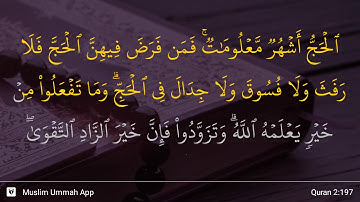 ٱلْحَجُّ أَشْهُرٌ مَّعْلُومَٰتٌ ۚ فَمَن فَرَضَ فِيهِنَّ ٱلْحَجَّ فَلَا
رَفَثَ وَلَا فُسُوقَ وَلَا جِدَالَ فِى ٱلْحَجِّ ۗ وَمَا تَفْعَلُوا۟ مِنْ
خَيْرٍ يَعْلَمْهُ ٱللَّهُ ۗ وَتَزَوَّدُوا۟ فَإِنَّ خَيْرَ ٱلزَّادِ ٱلتَّقْوَىٰ ۚ
Muslim Ummah App
Quran 2:197